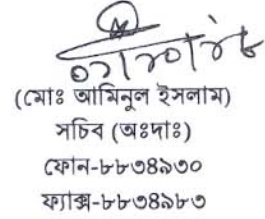 ০১/১০/১৮
(মোঃ আমিনুল ইসলাম)
সচিব (অঃদাঃ)
ফোন-৮৮৩৪৯৩০
ফ্যাক্স-৮৮৩৪৯৮৩